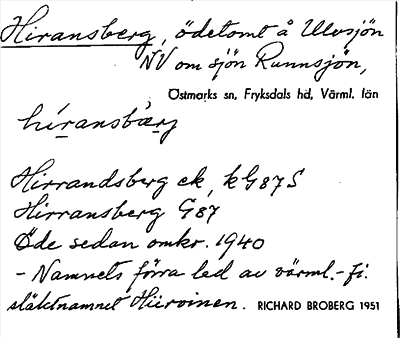 Hiransberg, ödetomt å Ulvsjön
NV om sjön Runnsjön,
Östmarks sn, Fryksdals hd, Värml. län
híransbær̀j
Hirrandsberg ek, kG87S
Hirransberg G87
Öde sedan omkr. 1940
- Namnets förra led av värml.-fi.
släktnamnet Hiirvinen. RICHARD BROBERG 1951